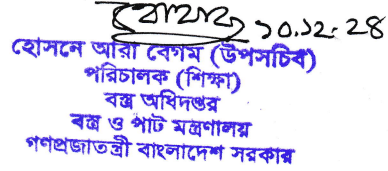 ১০.১২.২৪
হোসনে আরা বেগম (উপসচিব)
পরিচালক (শিক্ষা)
বস্ত্র অধিদপ্তর
বস্ত্র ও পাট মন্ত্রণালয়
গণপ্রজাতন্ত্রী বাংলাদেশ সরকার